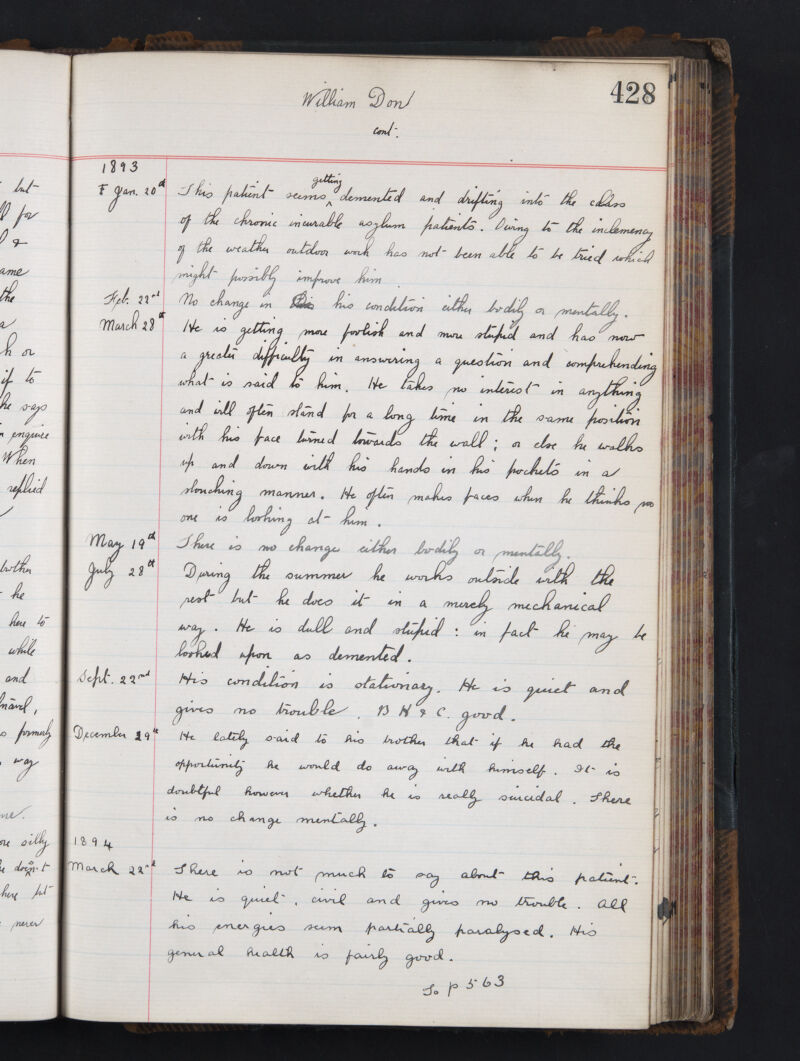 but
for
&
ame
the
a
h or
if to
he says
enquire
When
replied
brother
he
here to
while
and
formerly
way
me.
ore silly
he doesn't
here but
never
428
William Don
cont.
1893
F Jan. 20th This patient seems getting demented and drifting into the class
of the chronic incurable asylum patients. Owing to the inclemency
of the weather outdoor work has not been able to be tried which
might possibly improve him.
Feb. 22nd No change in this his condition either bodily or mentally.
March 28th He is getting more foolish and more stupid and has now
a greater difficulty in answering a question and comprehending
what is said to him. He takes no interest in anything
and will often stand for a long time in the same position
with his face turned towards the wall; or else he walks
up and down with his hands in his pockets in a
slouching manner. He often makes faces when he thinks no
one is looking at him.
May 19th There is no change either bodily or mentally.
July 28th During the summer he works outside with the
rest but he does it in a merely mechanical
way. He is dull and stupid: in fact he may be
looked upon as demented.
Sept. 22nd His condition is stationary. He is quiet and
gives no trouble. B H & C. good.
December 29th He lately said to his brother that if he had the
opportunity he would do away with himself. It is
doubtful however whether he is really suicidal. There
is no change mentally.
1894
March 22nd There is not much to say about this patient.
He is quiet, civil and gives no trouble. All
his energies seem partially paralysed. His
general health is fairly good.
To p 563